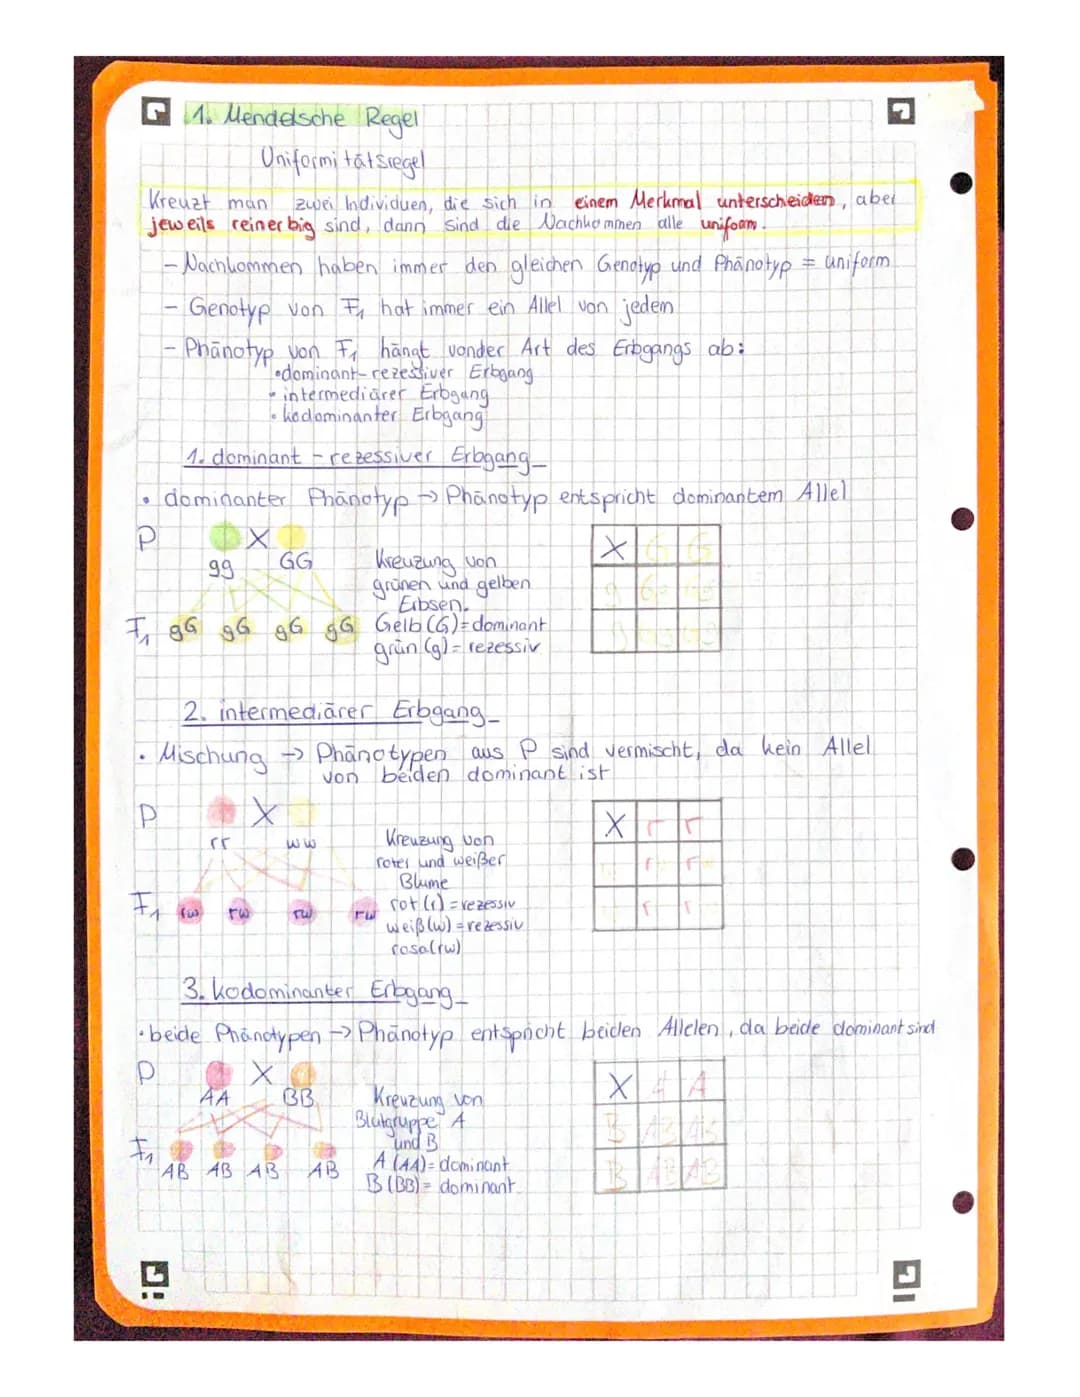 1. Mendelsche Regel
Uniformitätsregel
Kreuzt man zwei Individuen, die sich in einem Merkmal unterscheiden, aber
jeweils reinerbig sind, dann sind die Nachkommen alle uniform.
- Nachkommen haben immer den gleichen Genotyp und Phänotyp = uniform
- Genotyp von F1 hat immer ein Allel von jedem
- Phänotyp von F1 hängt von der Art des Erbgangs ab:
• dominant-rezessiver Erbgang
• intermediärer Erbgang
• kodominanter Erbgang
1. dominant - rezessiver Erbgang
• dominanter Phänotyp → Phänotyp entspricht dominantem Allel
P X
gg GG
Kreuzung von
grünen und gelben
Erbsen.
F1 gG gG gG gG
Gelb (G) = dominant
grün (g) = rezessiv
X G G
g Gg Gg
g Gg Gg
2. intermediärer Erbgang
• Mischung → Phänotypen aus P sind vermischt, da kein Allel
von beiden dominant ist
P X
rr ww
Kreuzung von
roter und weißer
Blume
F1 rw rw rw rw
rot (r) = rezessiv
weiß (w) = rezessiv
rosa (rw)
X r r
r r
r r
3. kodominanter Erbgang
• beide Phänotypen → Phänotyp entspricht beiden Allelen, da beide dominant sind
P X
AA BB
Kreuzung von
Blutgruppe A
und B
F1 AB AB AB AB
A (AA) = dominant
B (BB) = dominant
X A A
B AB AB
B AB AB